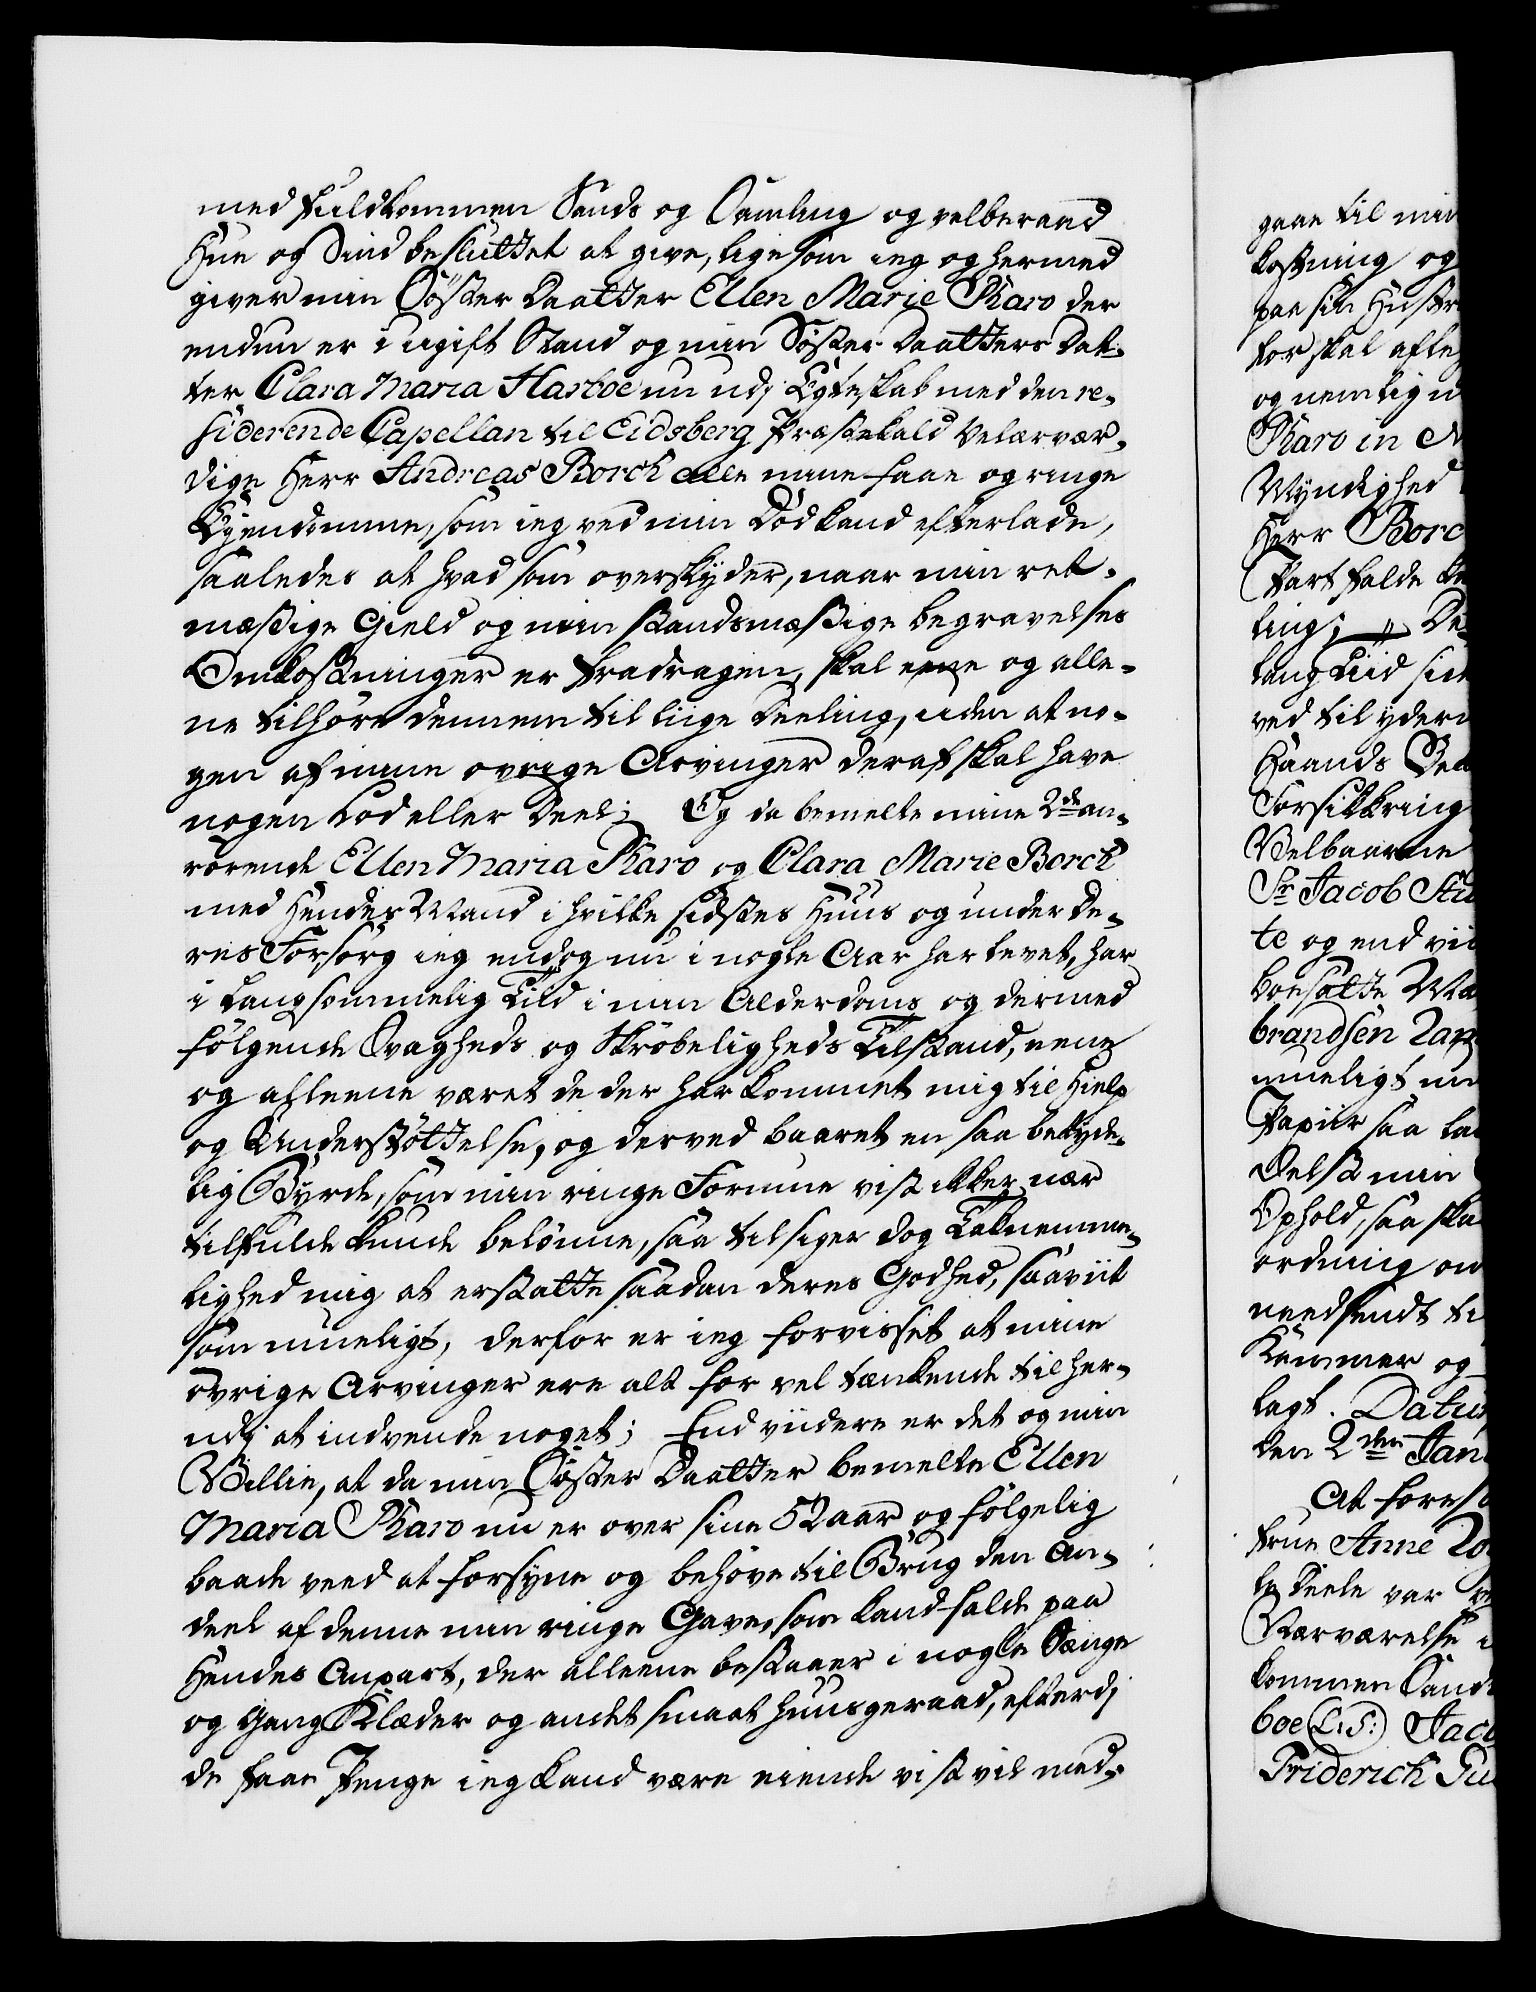 med fuldkommen Sands og Samling og velberaad
Hue og Sind besluttet at give, ligesom ieg og hermed
giver min Søster Daatter Ellen Marie Pharo der
endnu er i ugift Stand og min Søster Daatters Dat-
ter Clara Maria Harboe nu udj Egteskab med den re-
siderende Capellan til Eidsberg Præstekald Velærvær-
dige Herr Andreas Borch alle mine faae og ringe
Eyendomme, som ieg ved min Død kand efterlade,
saaledes at hvad som overskyder, naar min ret-
mæssige Gield og min standsmæssige begravelses
Omkostninger er fradragen, skal eene og alle-
ne tilhøre dennem til liige Deeling, uden at no-
gen af mine øvrige Arvinger deraf skal have
nogen Lod eller Deel; Og da bemelte mine 2de an-
rørende Ellen Maria Pharo og Clara Marie Borch
med Hendes Mand i hvilke sidstes Huus og under De-
res Forsorg ieg endog nu i nogle Aar har levet, har
i langsommelig Tiid i min Alderdoms og dermed
følgende Svagheds og Skrøbeligheds Tilstand, eene
og alleene været de der har kommet mig til Hielp
og Understøttelse, og derved baaret en saa betyde-
lig Byrde, som min ringe Formue vist ikke nær
tilfulde kunde belønne, saa tilsiger dog Taknemme-
lighed mig at erstatte saadan deres Godhed, saaviit
som mueligt, derfor er ieg forvisset at mine
øvrige Arvinger ere alt for vel tænkende til her-
udj at indvende noget; End viidere er det og min
Villie, at da min Søster Daatter bemelte Ellen
Maria Pharo nu er over sine 52 aar og følgelig
baade veed at forsyne og behøve til Brug den An-
deel af denne min ringe Gave, som kand falde paa
Hendes Anpart, der alleene bestaaer i nogle Senge
og Gang Klæder og andet smaat huusgeraad, efterdj
de faae Penge ieg kand være eiende vist vil med-
gaae til min
kostning og
paa sin Hustr
for skal afle
og nemlig u
Pharo in
Myndighed
Herr Borc
Part falde
ling; De
lang Tiid
ved til yder
Haands
Forsikkring
Velbaarne
Sr Jacob
te og end vii
boesatte Ma
brandsen
mueligt
Papiir saa
Delst min
Ophold, saa ska
ordning om
needsendt ti
Kammer og
lagt. Datu
den 2den Jan
At fores
frue Anne
deele var
Nærværelse i
kommen Sands
boe (L:S:) Jaco
Friderich